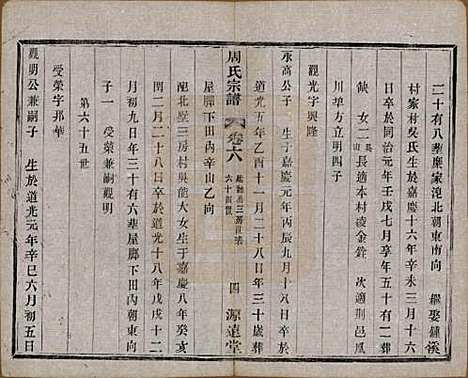 二十有八葬廖家沲北朝東南向　繼娶鍾溪
村家村吳氏生於嘉慶十六年辛未三月十六
日卒於同治元年壬戌七月享年五十有二葬
川埠方立明四子
缺　女二吳山長適本村凌金銓　次適荆邑鳳
觀光字興隆
永高公子　生于嘉慶元年丙辰九月十六日卒
道光五年乙酉十一月二十八日年三十歲葬
屋廊下田內辛山乙向
周氏宗譜　卷六　六十四世　四　源遠堂
配北墅三房村吳龍大女生于嘉慶八年癸亥
閏二月二十八日卒于道光十八年戊戌十二
月初九日年三十有六葬屋廊下田內朝東向
子一　受榮兼嗣觀明
第六十五世
受榮字邦華
觀明公兼嗣子　生於道光元年辛巳六月初五日